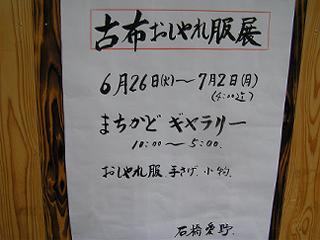 古布おしゃれ服展
6月26日(火)～7月2日(月)
(4:00迄)
まちかどギャラリー
10:00～5:00.
おしゃれ服 手さげ 小物.